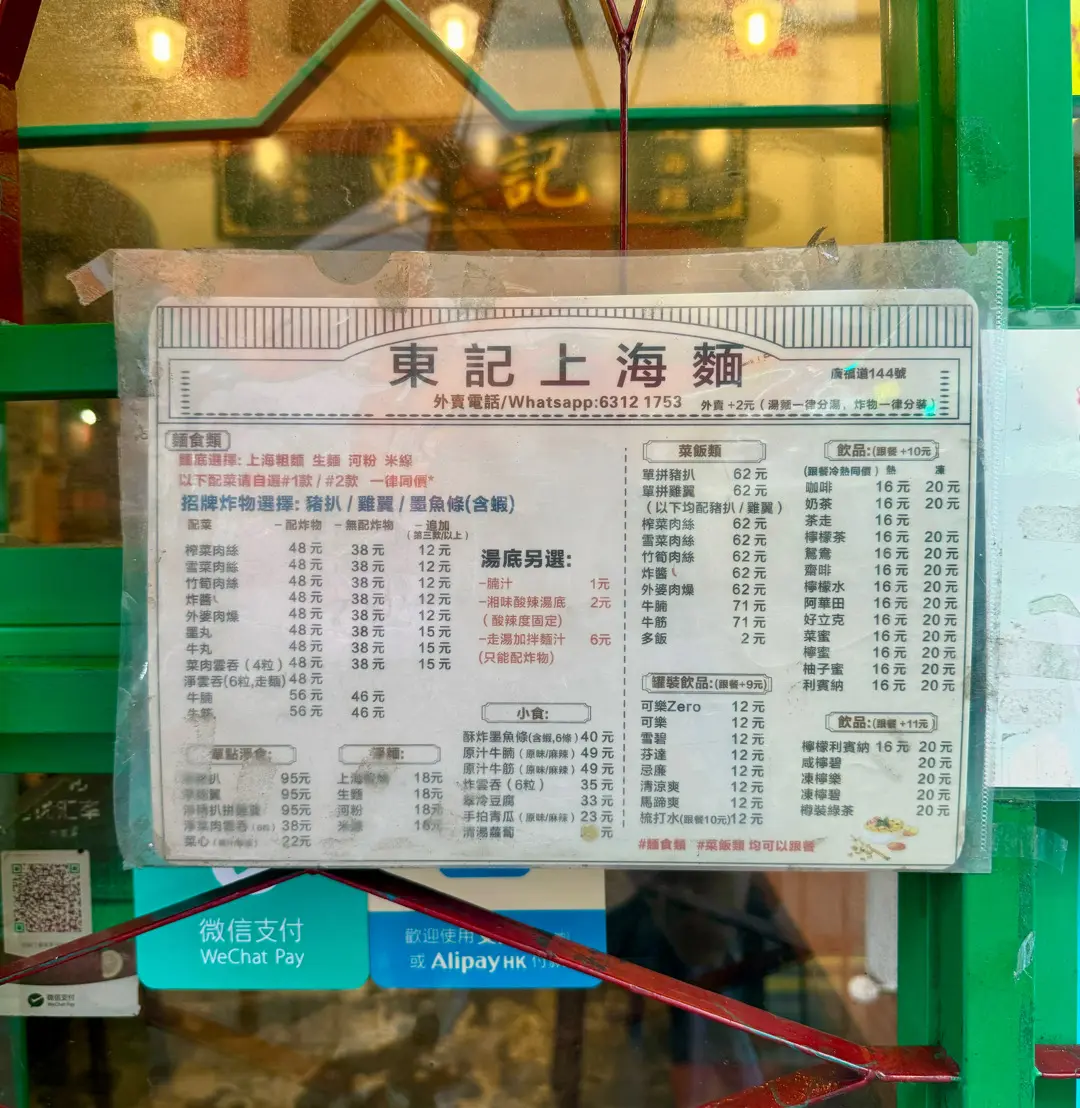 東記
東記上海麵
廣福道144號
外賣電話/Whatsapp:6312 1753
外賣 +2元 ( 湯麵一律分湯, 炸物一律分裝 )
麵食類
麵底選擇: 上海粗麵 生麵 河粉 米線
以下配菜请自選#1款 / #2款 一律同價*
招牌炸物選擇: 豬扒 / 雞翼 / 墨魚條(含蝦)
配菜 －配炸物 －無配炸物 －追加
( 第三款/以上 )
榨菜肉絲 48元 38元 12元
雪菜肉絲 48元 38元 12元
竹筍肉絲 48元 38元 12元
炸醬 48元 38元 12元
外婆肉燥 48元 38元 12元
墨丸 48元 38元 15元
牛丸 48元 38元 15元
菜肉雲吞 ( 4粒 ) 48元 38元 15元
淨雲吞(6粒,走麵) 48元
牛腩 56元 46元
牛筋 56元 46元
湯底另選:
－腩汁 1元
－湘味酸辣湯底 2元
( 酸辣度固定)
－走湯加拌麵汁 6元
(只能配炸物)
單點淨食:
95元
95元
95元
淨菜肉雲吞 38元
菜心 22元
淨麵:
上海 18元
生麵 18元
河粉 18元
米線
小食:
酥炸墨魚條(含蝦,6條) 40元
原汁牛腩 ( 原味/麻辣 ) 49元
原汁牛筋 ( 原味/麻辣 ) 49元
炸雲吞 ( 6粒 ) 35元
冷豆腐 33元
手拍青瓜 ( 原味/麻辣 ) 23元
清湯蘿蔔 元
菜飯類
單拼豬扒 62元
單拼雞翼 62元
( 以下均配豬扒 / 雞翼 )
榨菜肉絲 62元
雪菜肉絲 62元
竹筍肉絲 62元
炸醬 62元
外婆肉燥 62元
牛腩 71元
牛筋 71元
多飯 2元
罐裝飲品:(跟餐+9元)
可樂Zero 12元
可樂 12元
雪碧 12元
芬達 12元
忌廉 12元
清涼爽 12元
馬蹄爽 12元
梳打水(跟餐10元)12元
#麵食類 #菜飯類 均可以跟餐
飲品:(跟餐 +10元)
(跟餐冷熱同價 ) 熱 凍
咖啡 16元 20元
奶茶 16元 20元
茶走 16元
檸檬茶 16元 20元
鴛鴦 16元 20元
齋啡 16元 20元
檸檬水 16元 20元
阿華田 16元 20元
好立克 16元 20元
菜蜜 16元 20元
檸蜜 16元 20元
柚子蜜 16元 20元
利賓納 16元 20元
飲品:(跟餐 +11元)
檸檬利賓納 16元 20元
咸檸碧 20元
凍檸樂 20元
凍檸碧 20元
樽裝綠茶 20元
微信支付
WeChat Pay
歡迎使用
或 Alipay HK 付款
微信支付
WeChat Pay